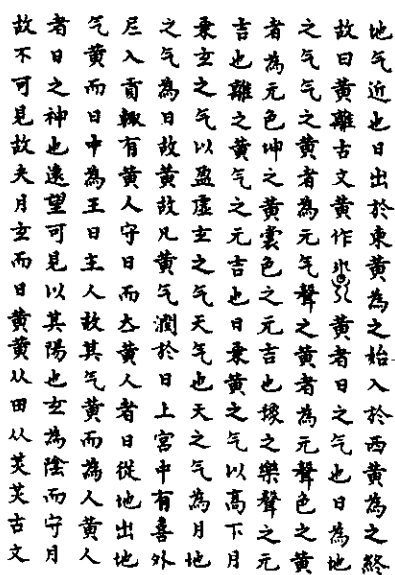 地气近也日出於東黃為之始入於西黃為之終
故曰黃離古文黃作黃者日之气也日為地
之气气之黃者為元气聲之黃者為元聲色之黃
者為元色坤之黃裳色之元吉也之樂聲之元
吉也離之黃气之元吉也日秉黃之气以高下月
秉玄之气以盈虛玄之气天气也天之气為月地
之气為日故黃故凡黃气潤於日上宮中有喜外
𡰥入貢輙有黃人守日而立黃人者日從地出地
气黃而日中為王日主人故其气黃而為人黃人
者日之神也遠望可見以其陽也玄為陰而守月
故不可見故夫月玄而日黃黃从田从炗炗古文